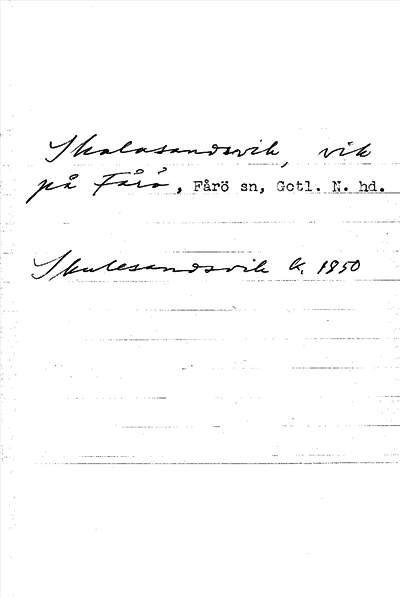 Skalasandsvik, vik
på Fårö, Fårö sn, Gotl. N. hd.
Skulesandsvik k. 1850